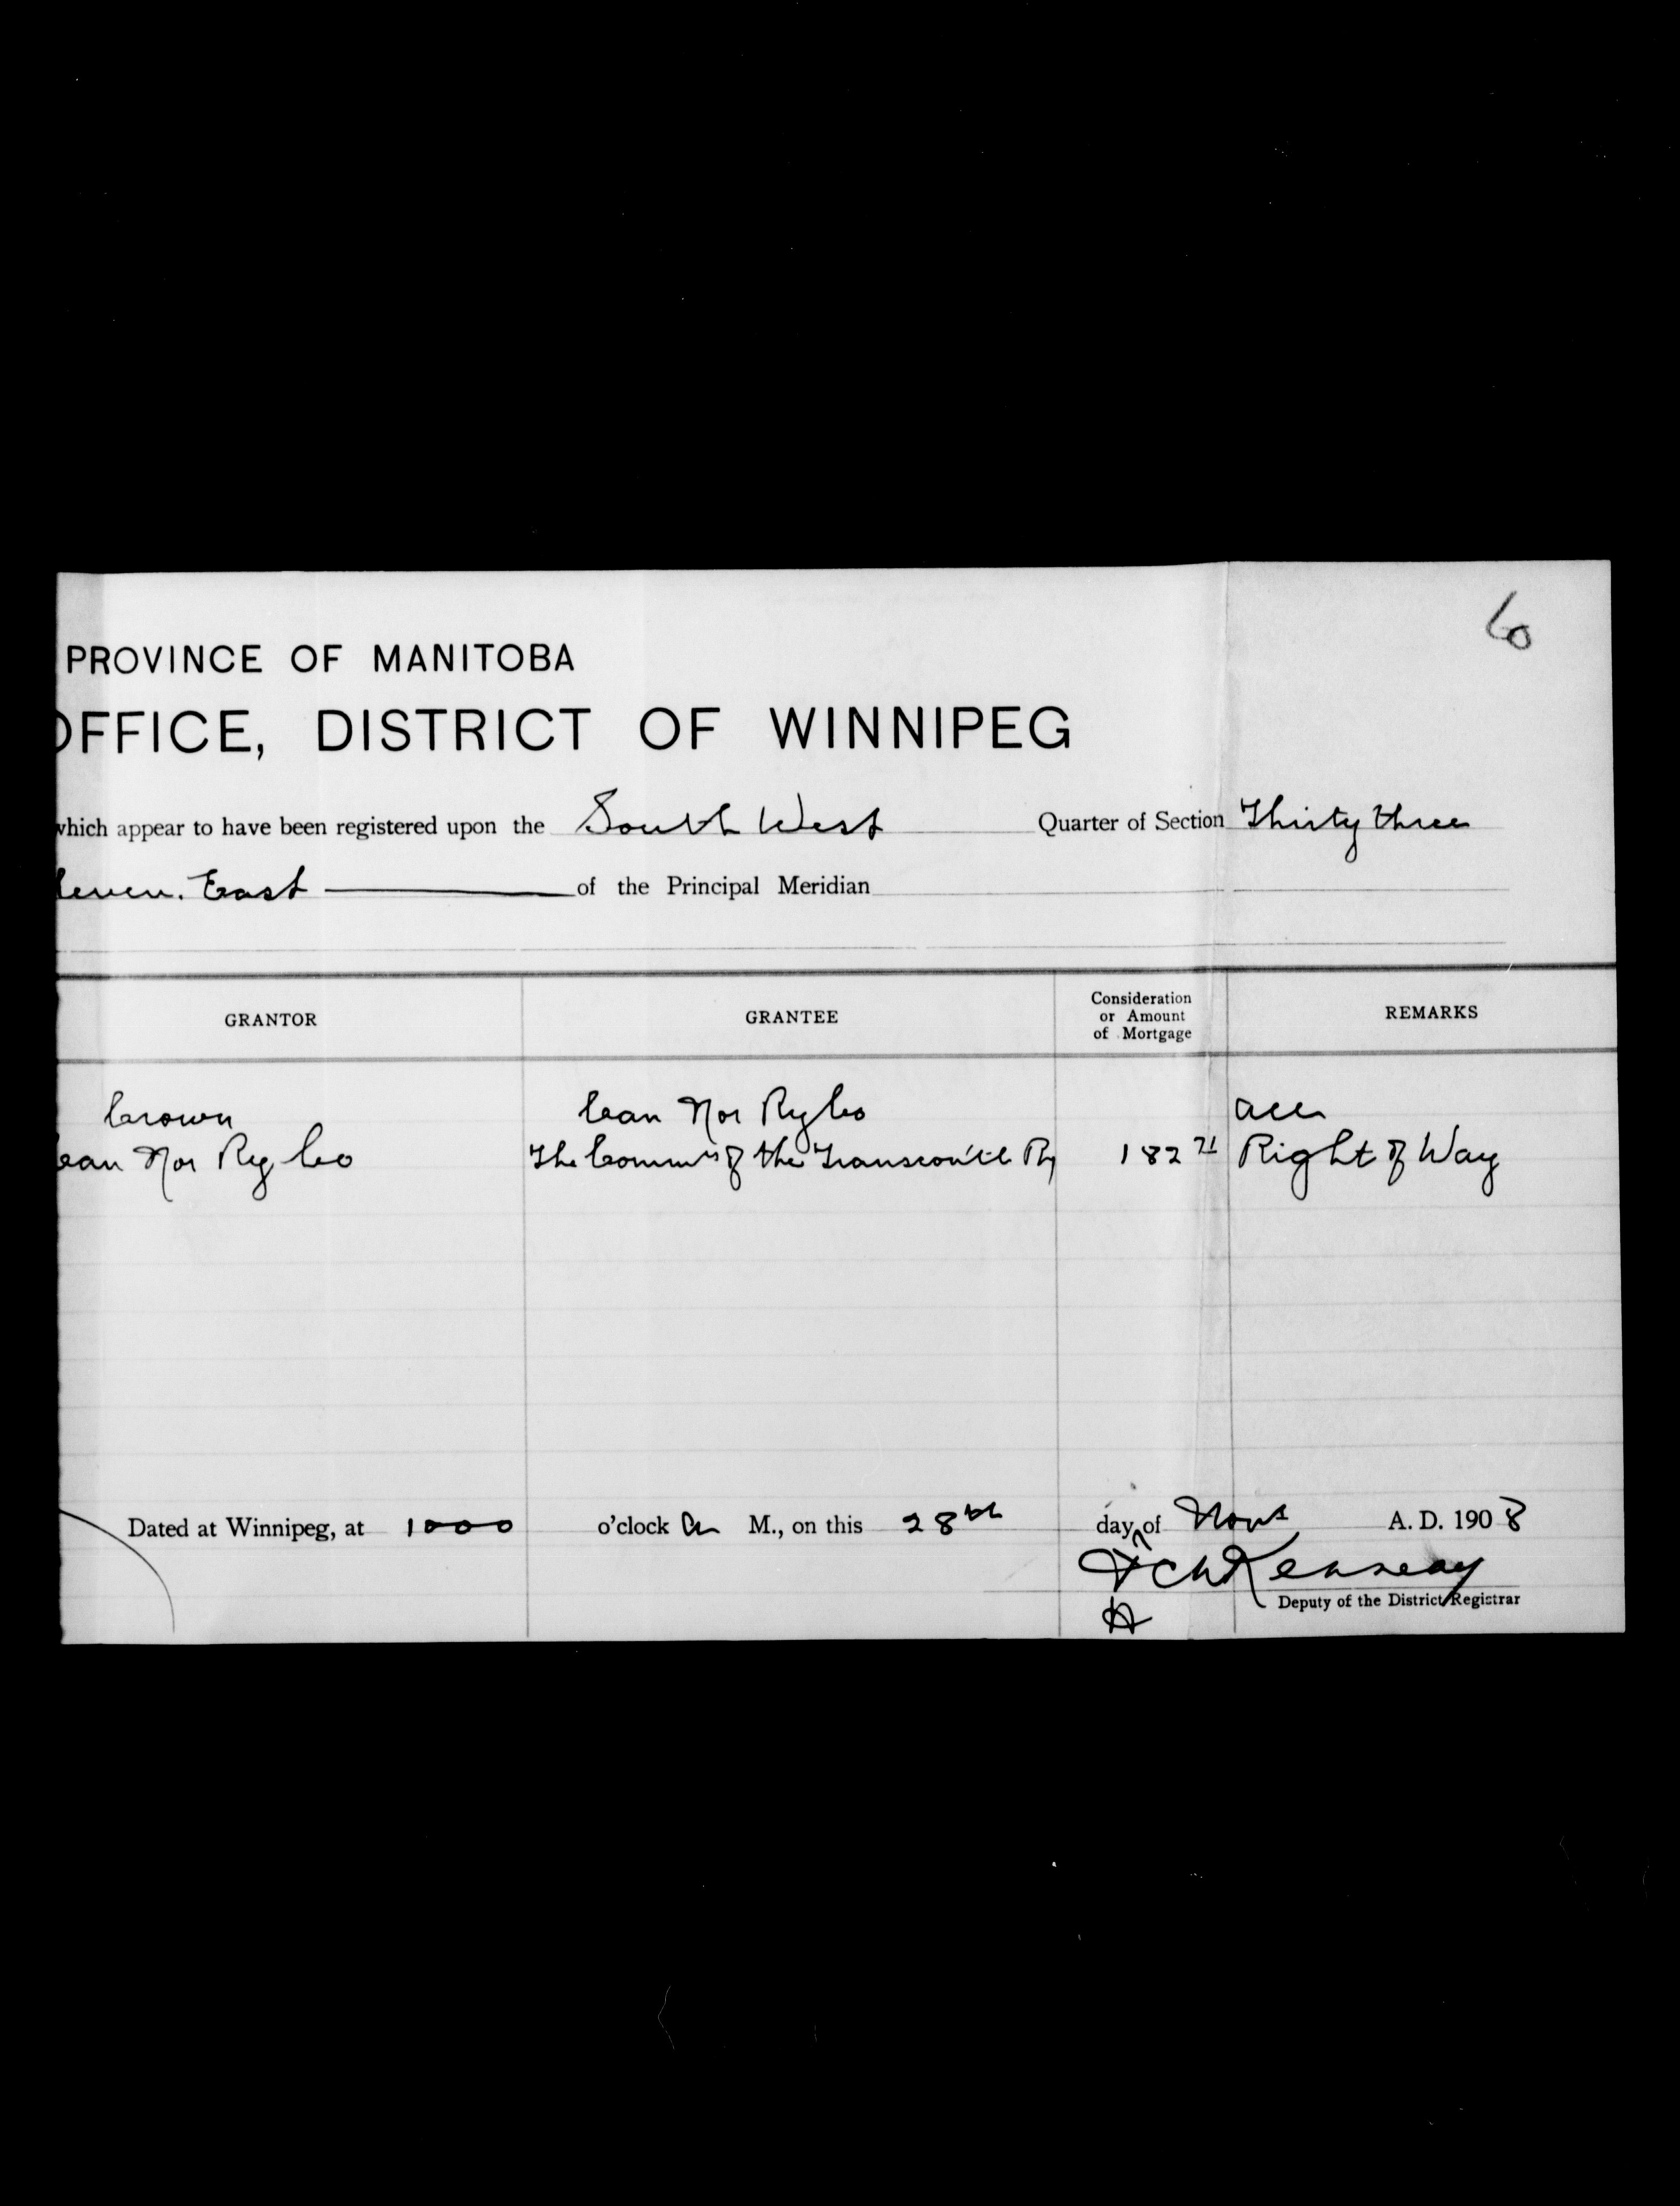 60
PROVINCE OF MANITOBA
OFFICE, DISTRICT OF WINNIPEG
which appear to have been registered upon the South West Quarter of Section Thirty three
leven. East of the Principal Meridian
GRANTOR GRANTEE Consideration or Amount of Mortgage REMARKS
Crown Can Nor Ry Co All
Can Nor Ry Co The Commrs of the Transcontl Ry 182 71 Right of Way
Dated at Winnipeg, at 1000 o'clock a M., on this 28th day of Novr A. D. 1908
Deputy of the District Registrar